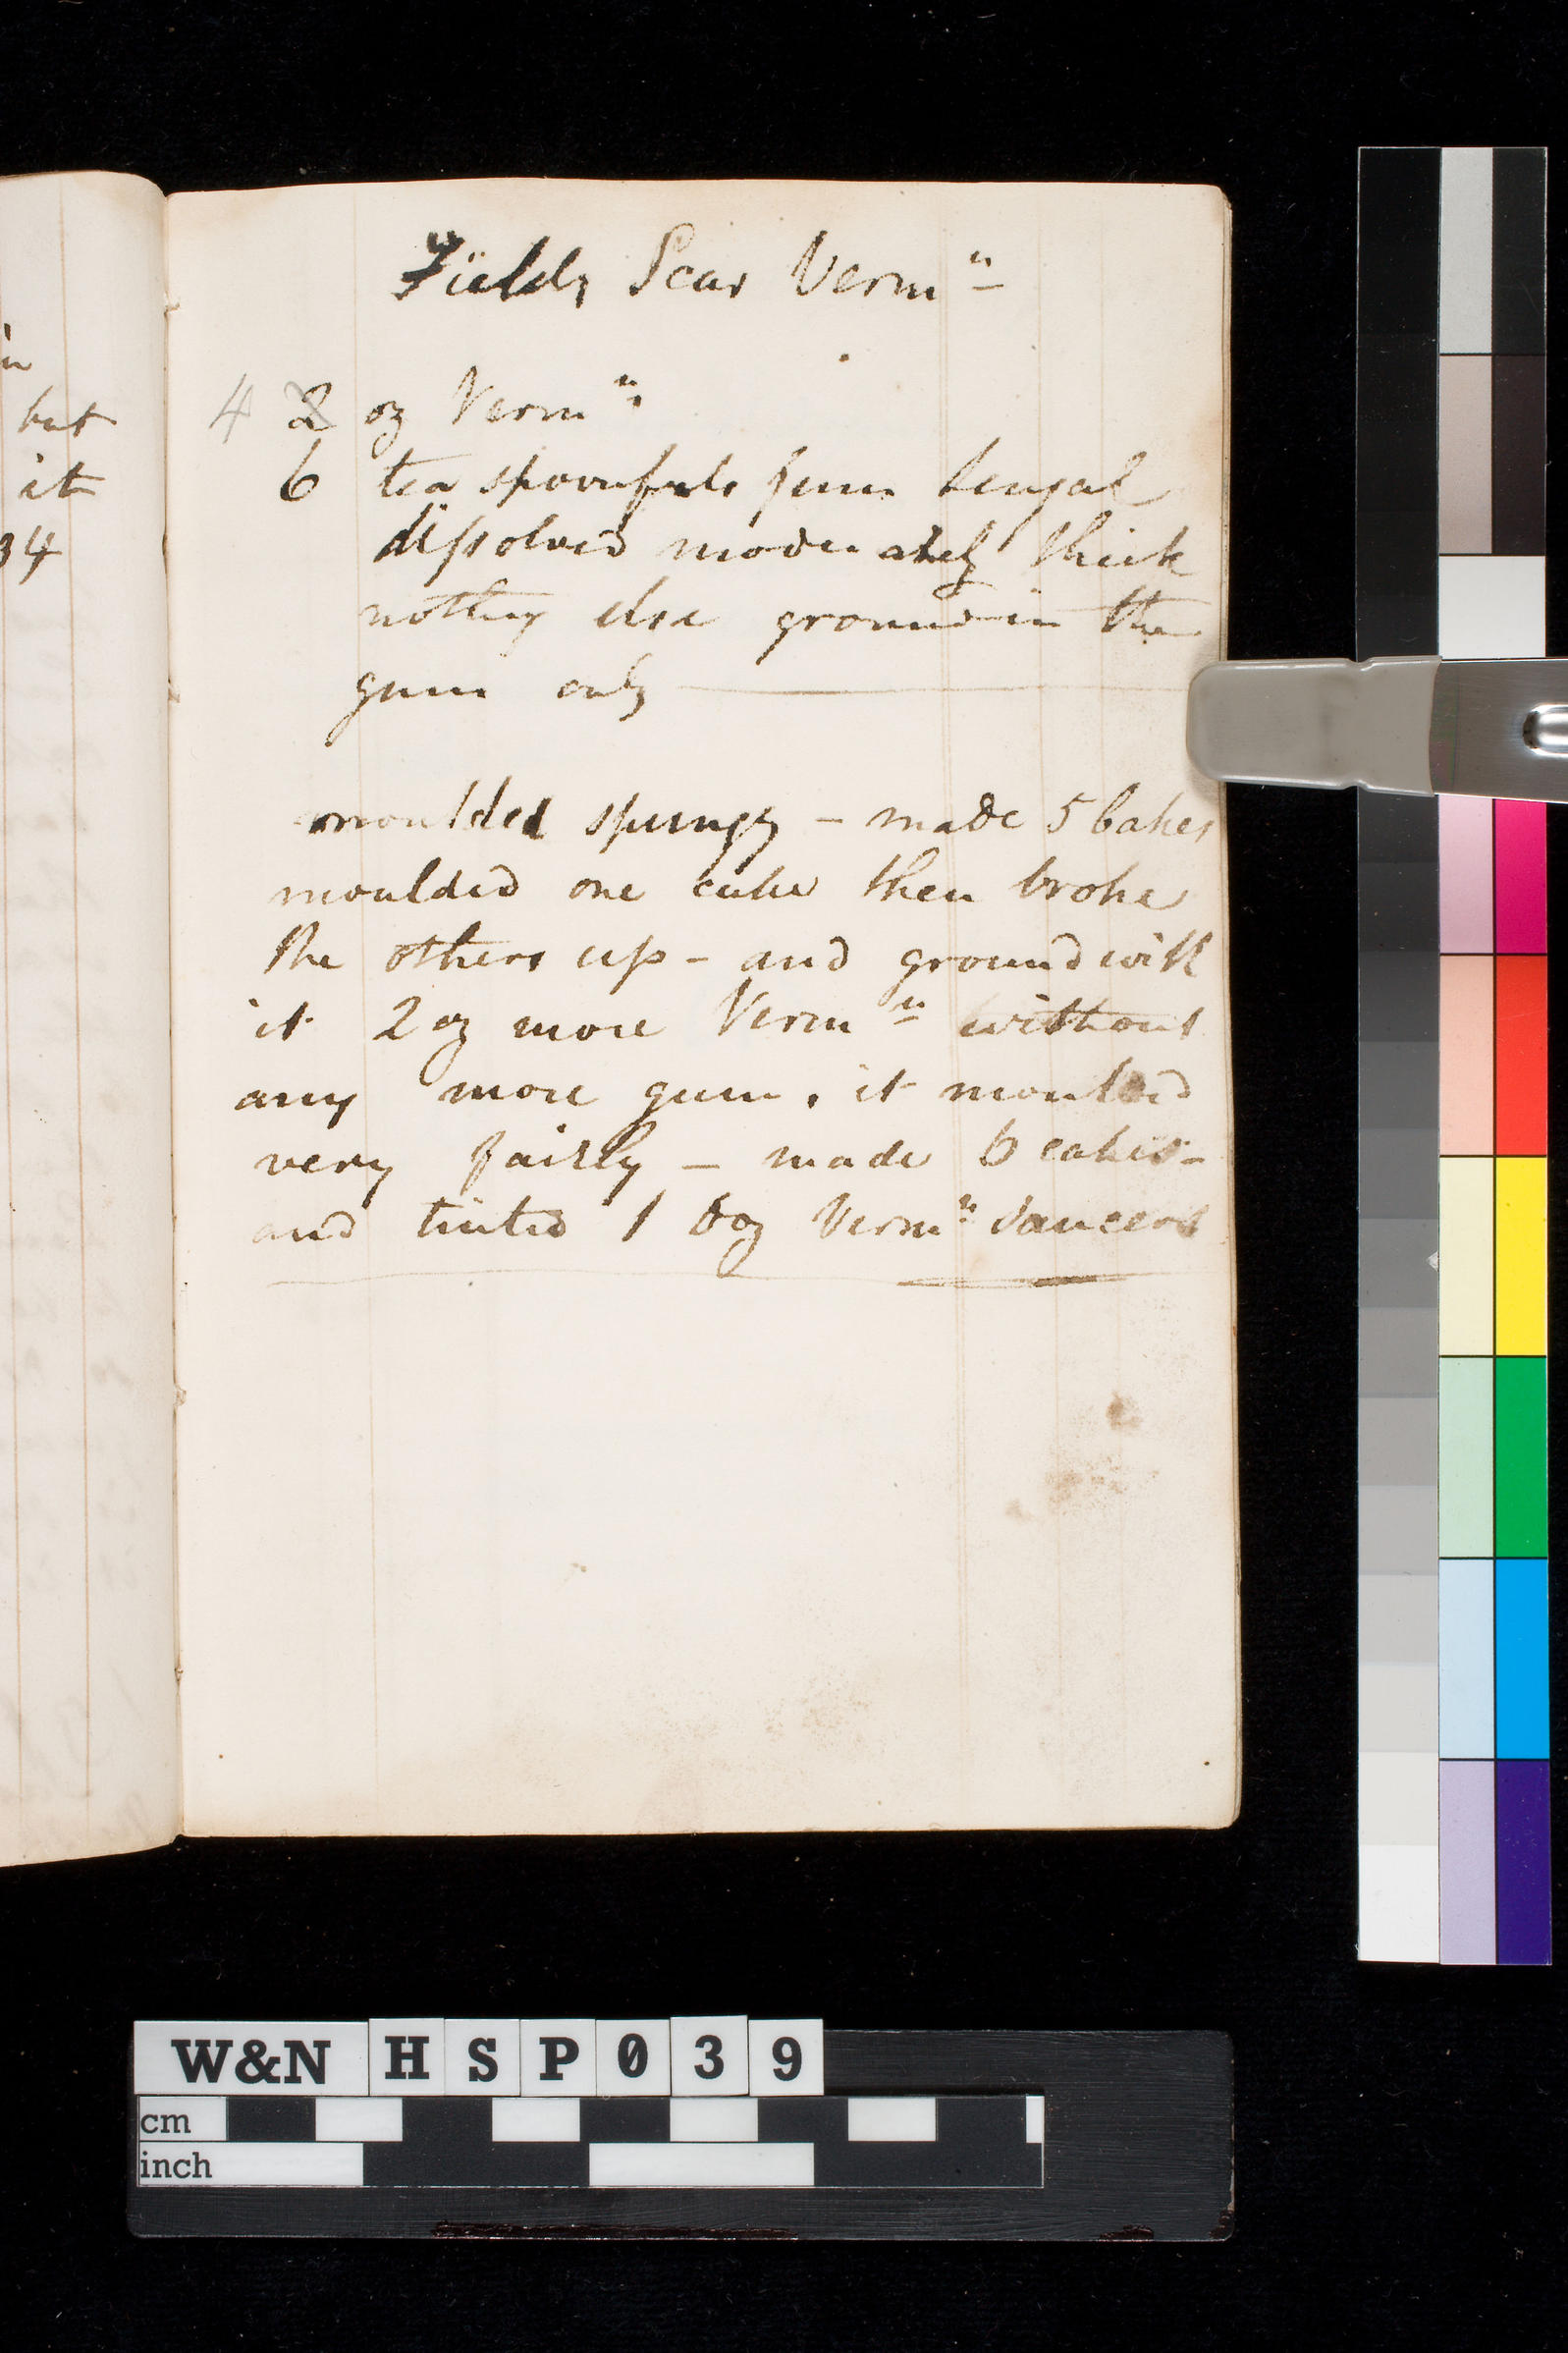 in
but
it
34
Fields Scar Vermn
4 2 oz Vermn
6 tea spoonfuls gum Sengal
dissolved moderately thick
nothing else ground in the
gum only
moulded spungy - made 5 cakes
moulded one cake then broke
the others up - and ground with
it 2 oz more Vermn without
any more gum. it moulded
very fairly - made 6 cakes -
and tinted 1 Doz Vermn saucers
W&N HSP039
cm
inch